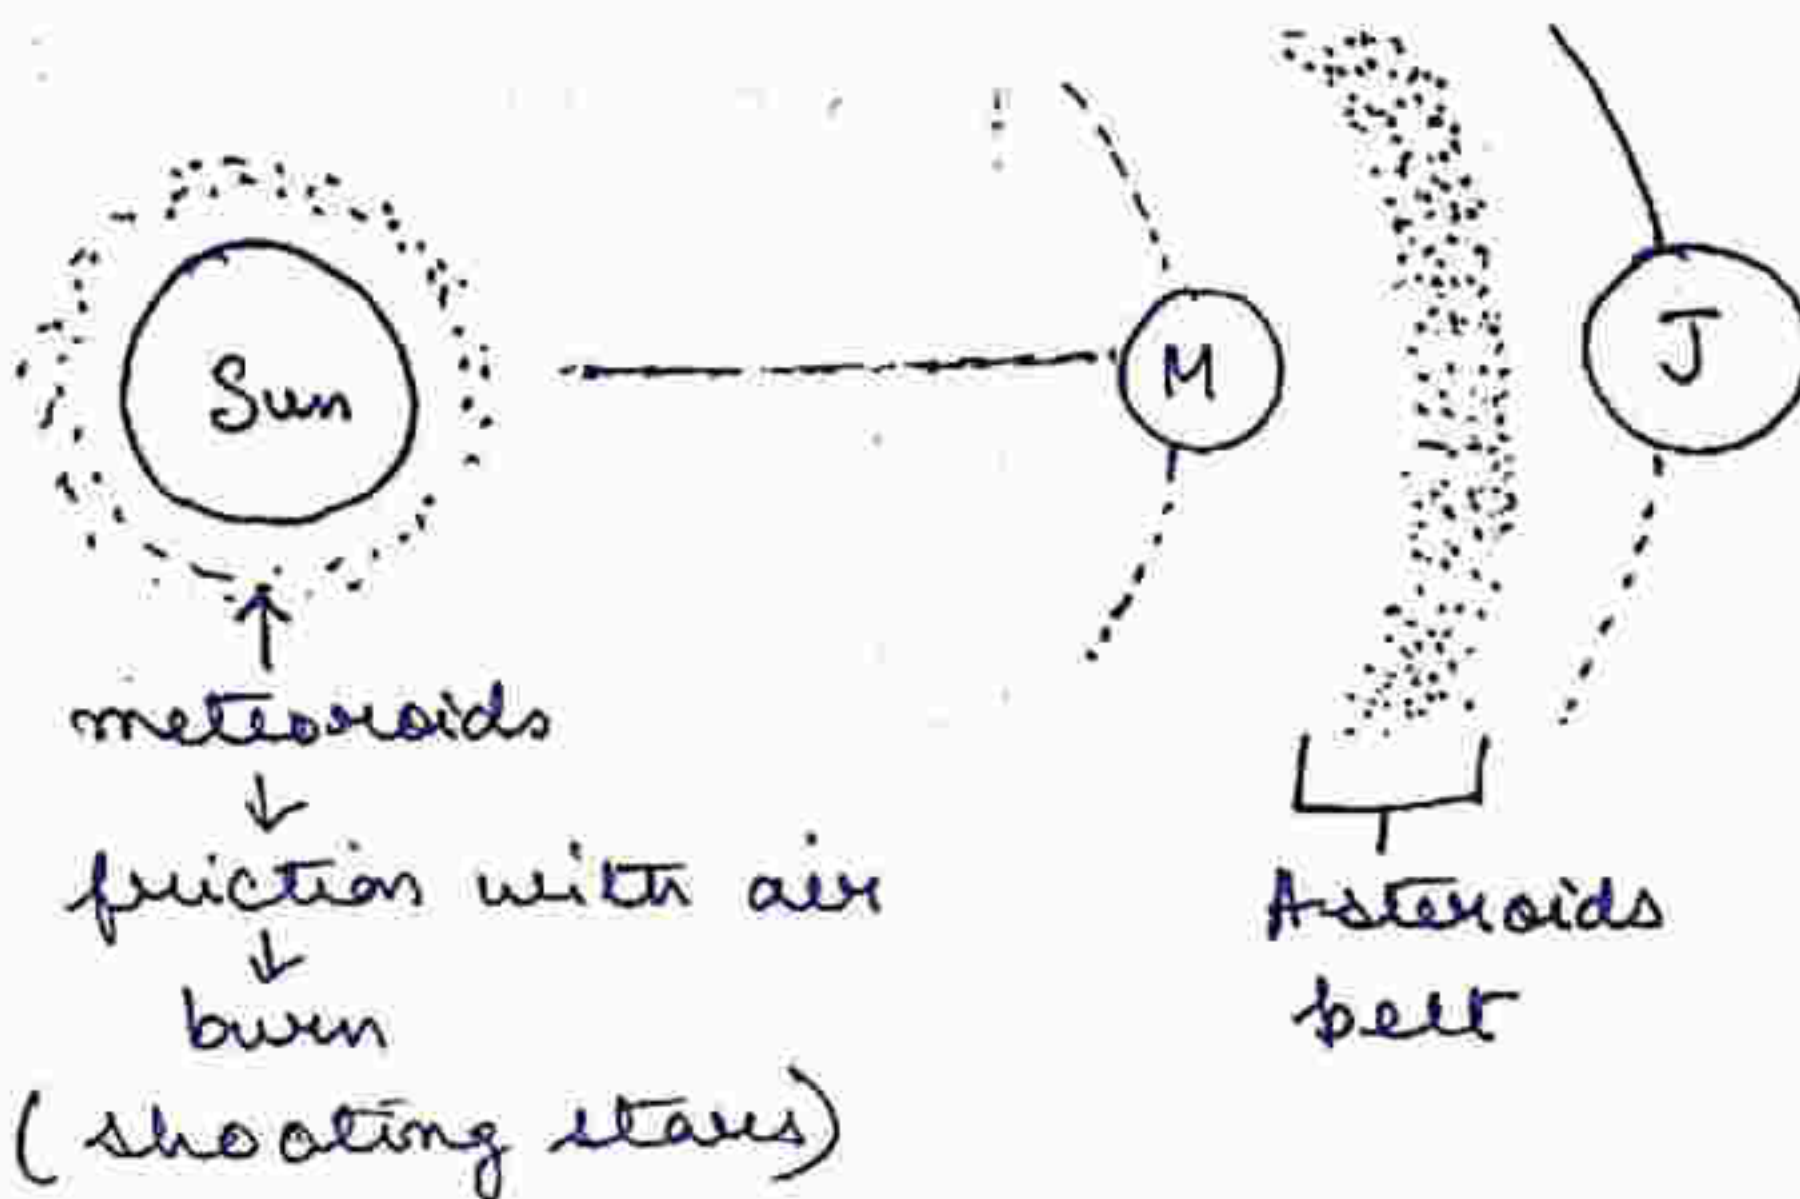 Sun
M
J
meteoroids
friction with air
burn
(shooting stars)
Asteroids
belt